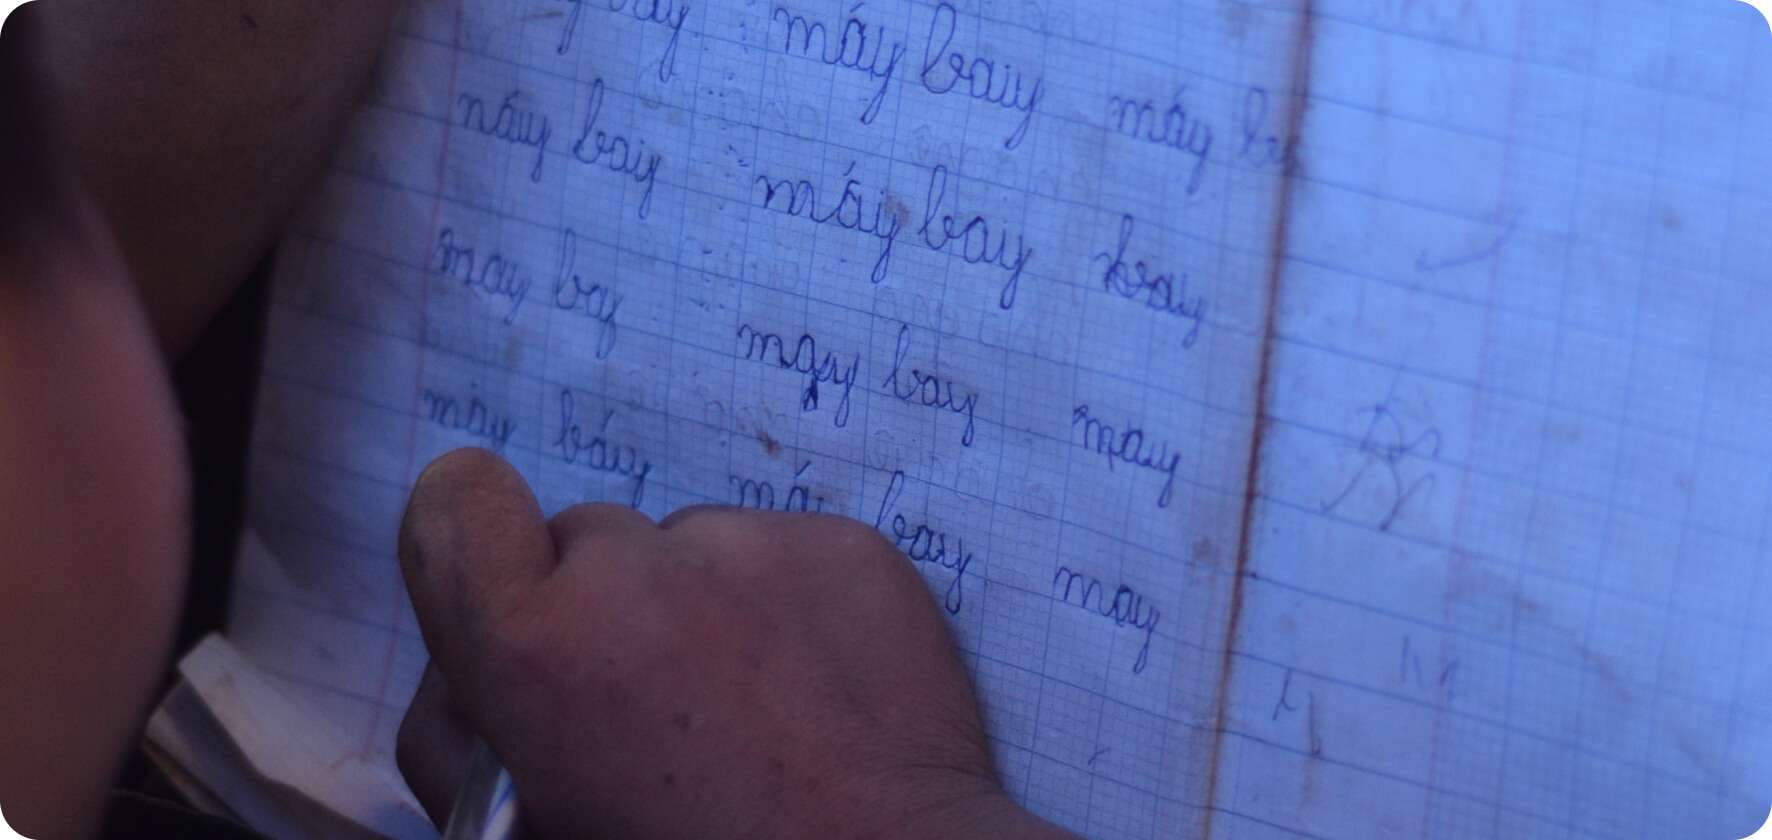 bay máy bay máy
náy bay máy bay bay
may bay may bay may
máy báy bay may